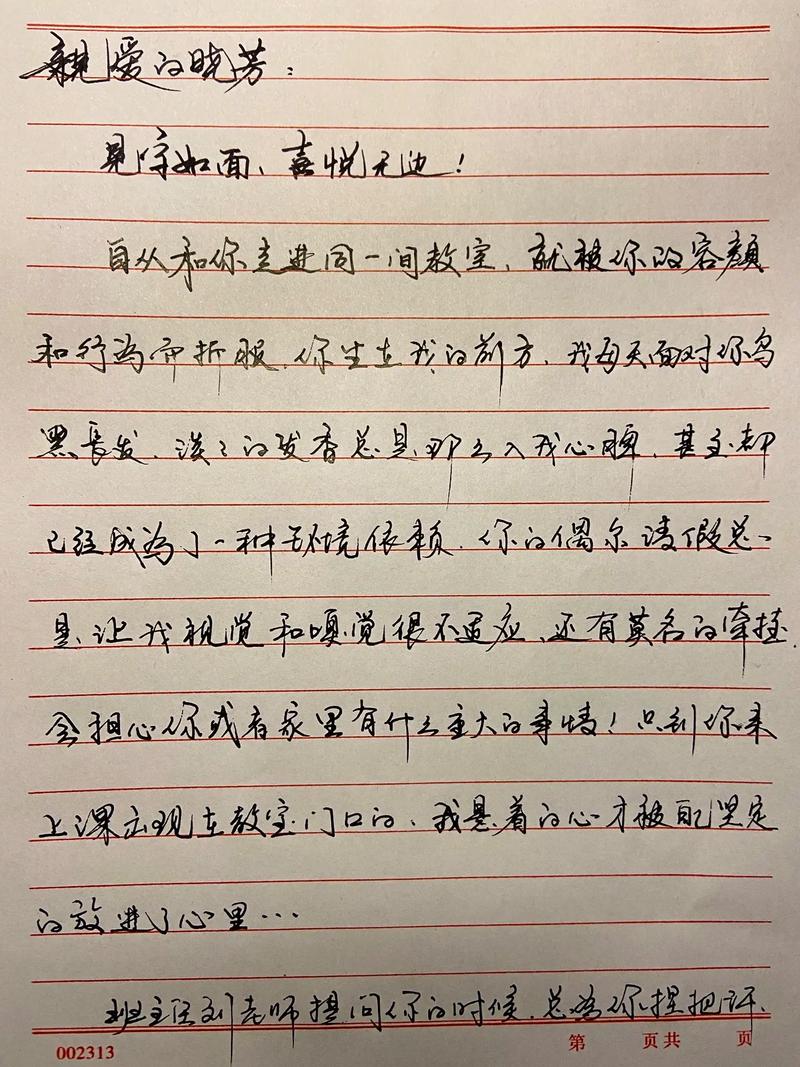 親爱的晓芳：
見字如面、喜悦无边！
自从和你走进同一间教室，就被你的容颜
和行为而折服．你坐在我的前方，我每天面对你乌
黑長发．淡淡的发香总是那么入我心脾，甚至都
已经成为了一种环境依赖．你的偶尔请假总
是让我视觉和嗅觉很不适应、还有莫名的牵挂．
会担心你或者家里有什么重大的事情！只到你来
上课出现在教室门口的，我悬着的心才被自己坚定
的放进了心里…
班主任刘老师提问你的时候．总为你捏把汗．
002313 第 页共 页